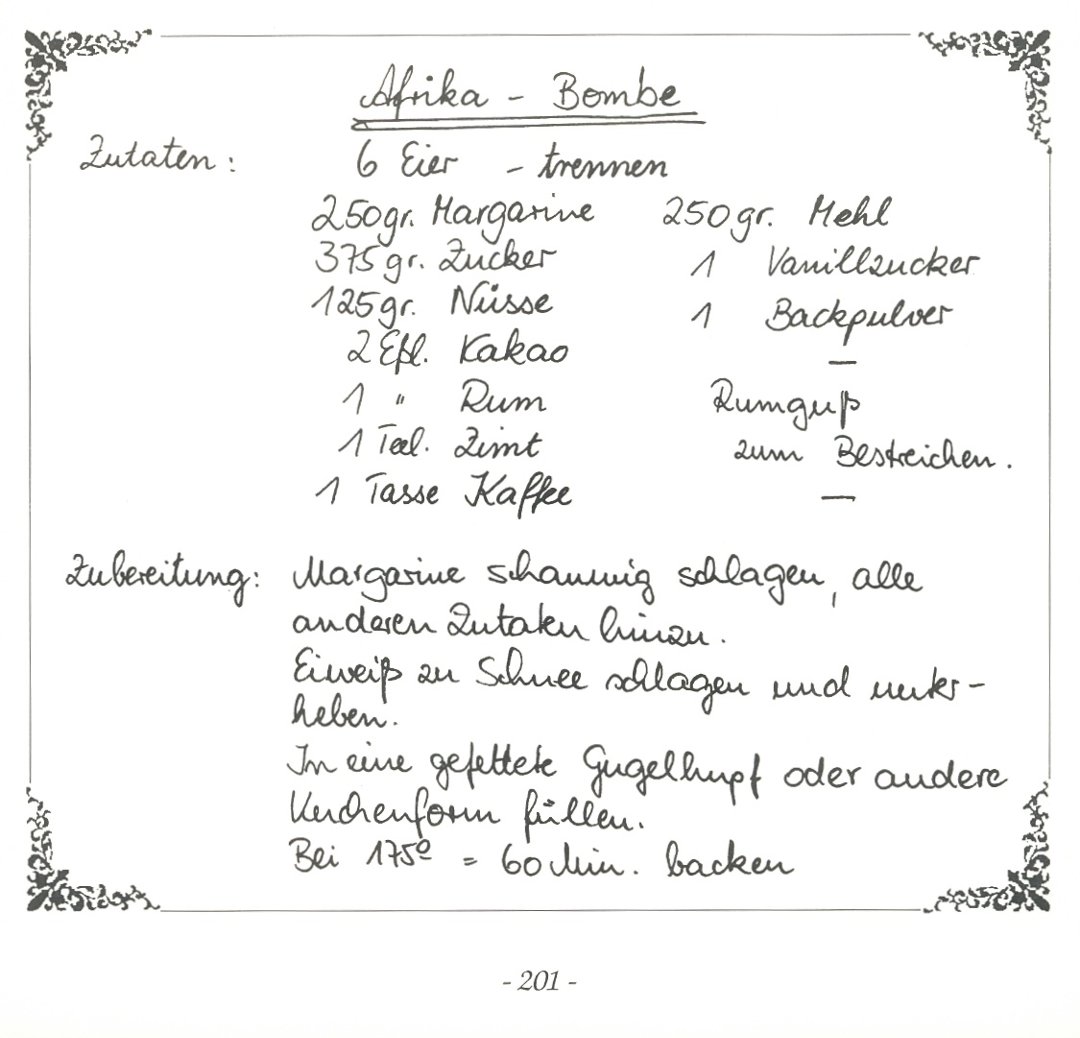 Afrika - Bombe
Zutaten: 6 Eier - trennen
250gr. Margarine
375gr. Zucker
125gr. Nüsse
2 Eßl. Kakao
1 " Rum
1 Teel. Zimt
1 Tasse Kaffee
250gr. Mehl
1 Vanillzucker
1 Backpulver
—
Rumguß
zum Bestreichen.
—
Zubereitung: Margarine schaumig schlagen, alle
anderen Zutaten hinzu.
Eiweiß zu Schnee schlagen und unter-
heben.
In eine gefettete Gugelhupf oder andere
Kuchenform füllen.
Bei 175° = 60 Min. backen
- 201 -